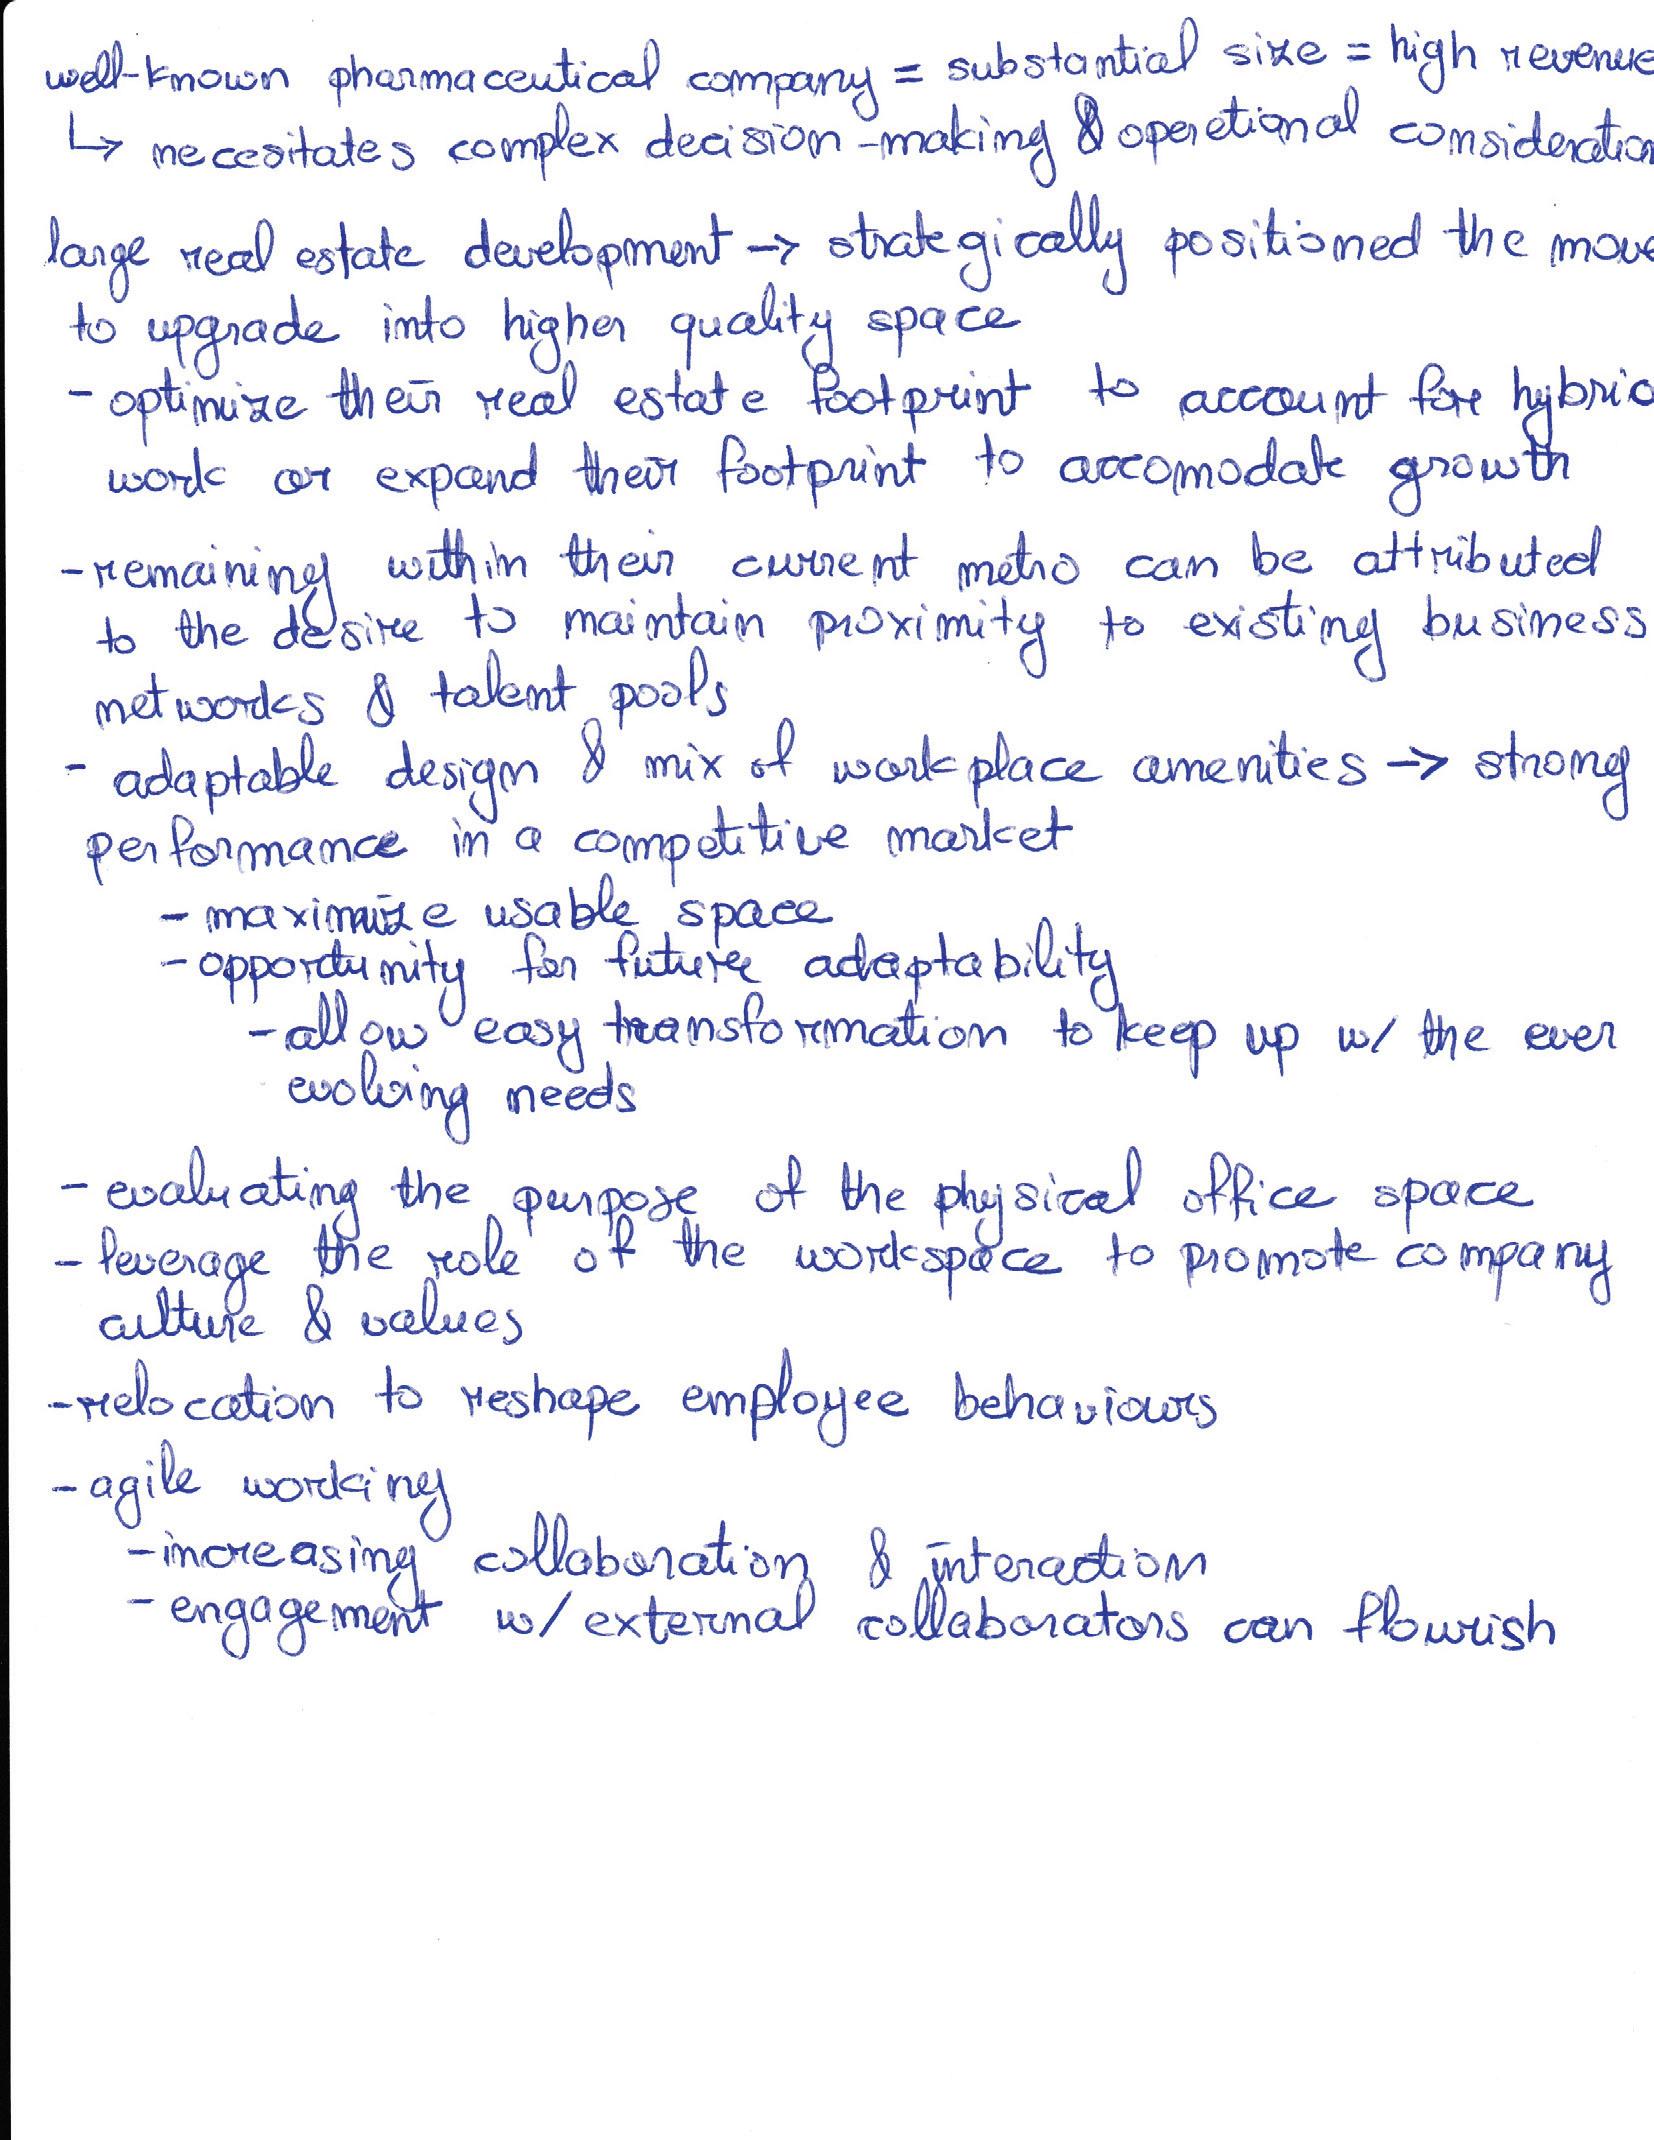 well-known pharmaceutical company = substantial size = high revenue
↳ necesitates complex decision-making & operetional consideration
large real estate development → strategically positioned the move
to upgrade into higher quality space
- optimize their real estate footprint to account for hybrid
work or expand their footprint to accomodate growth
- remaining within their current metro can be attributed
to the desire to maintain proximity to existing business
networks & talent pools
- adaptable design & mix of workplace amenities → strong
performance in a competitive market
- maximize usable space
- opportunity for future adaptability
- allow easy transformation to keep up w/ the ever
evolving needs
- evaluating the purpose of the physical office space
- leverage the role of the workspace to promote company
culture & values
- relocation to reshape employee behaviours
- agile working
- increasing collaboration & interaction
- engagement w/ external collaborators can flourish